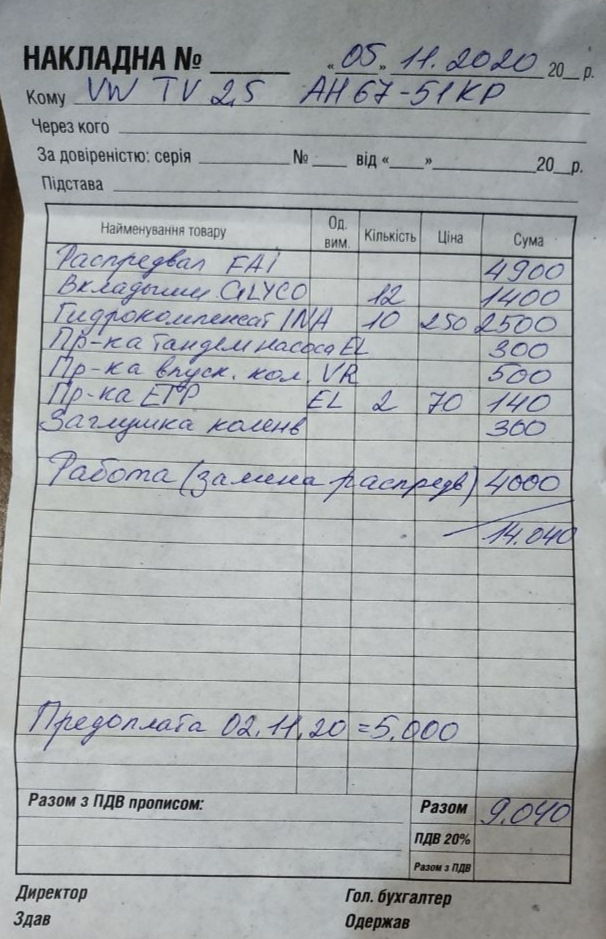 НАКЛАДНА № ______ „05„ 11.2020 20__р.
Кому VW TV 2,5 АН 67-51 КР
Через кого
За довіреністю: серія ________ № ____ від «___» ________ 20__р.
Підстава
Найменування товару Од. вим. Кількість Ціна Сума
Распредвал FAI 4900
Вкладыши GLYCO 12 1400
Гидрокомпенсат INA 10 250 2500
Пр-ка тандем насоса EL 300
Пр-ка впуск. кол. VR 500
Пр-ка ЕГР EL 2 70 140
Заглушка коленв 300
Работа (замена распредв) 4000
14.040
Предоплата 02.11.20 = 5.000
Разом з ПДВ прописом: Разом 9.040
ПДВ 20%
Разом з ПДВ
Директор Гол. бухгалтер
Здав Одержав